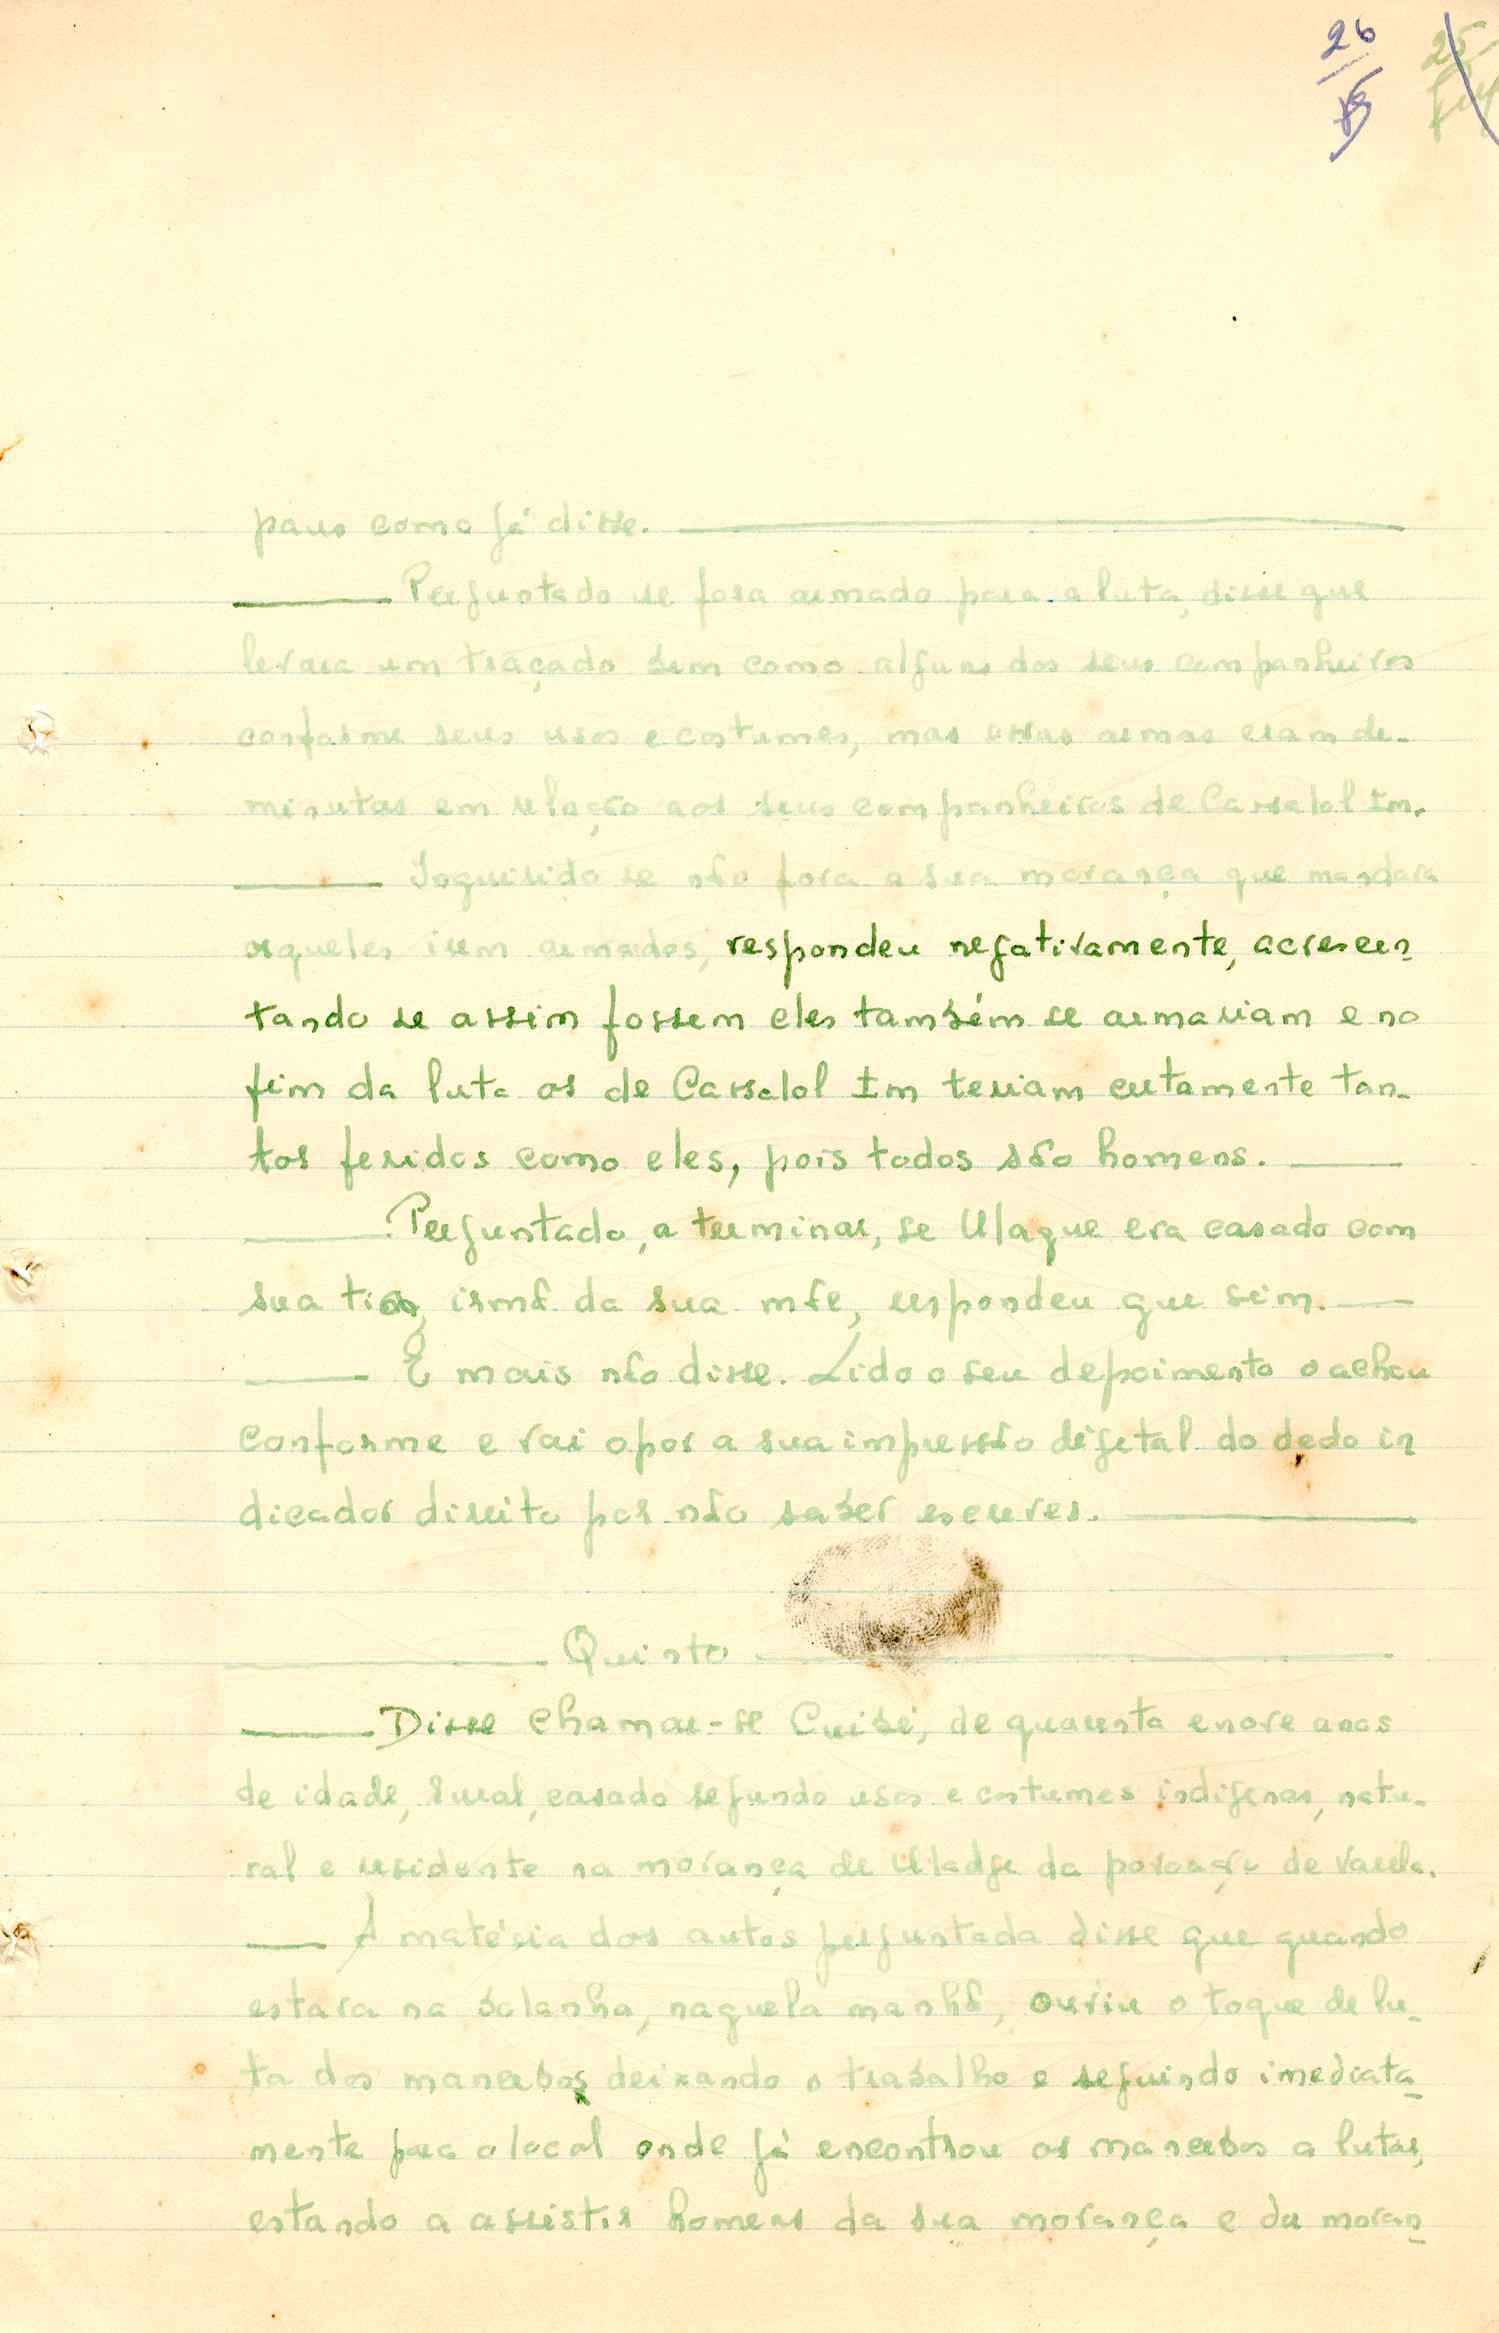 26
25
paus como já disse.
Perguntado se fora armado para a luta, disse que
levara um traçado bem como alguns dos seus companheiros
conforme seus usos e costumes, mas essas armas eram de-
minutas em relação aos seus companheiros de Cassalol Im.
Inquirido se não fora a sua morança que mandara
aqueles irem armados, respondeu negativamente, acrescen-
tando se assim fossem eles também se armariam e no
fim da luta os de Cassalol Im teriam certamente tan-
tos feridos como eles, pois todos são homens.
Perguntado, a terminar, se Ulaque era casado com
sua tia, irmã da sua mãe, respondeu que sim.
E mais não disse. Lido o seu depoimento o achou
conforme e vai opor a sua impressão digital do dedo in
dicador direito por não saber escrever.
Quinto
Disse chamar-se Cuibé, de quarenta e nove anos
de idade, rural, casado segundo usos e costumes indígenas, natu-
ral e residente na morança de Uladge da povoação de Varela.
A matéria dos autos perguntada disse que quando
estava na bolanha, naquela manhã, ouviu o toque de lu-
ta dos mancebos deixando o trabalho e seguindo imediata-
mente para o local onde já encontrou os mancebos a lutar,
estando a assistir homens da sua morança e da moran-